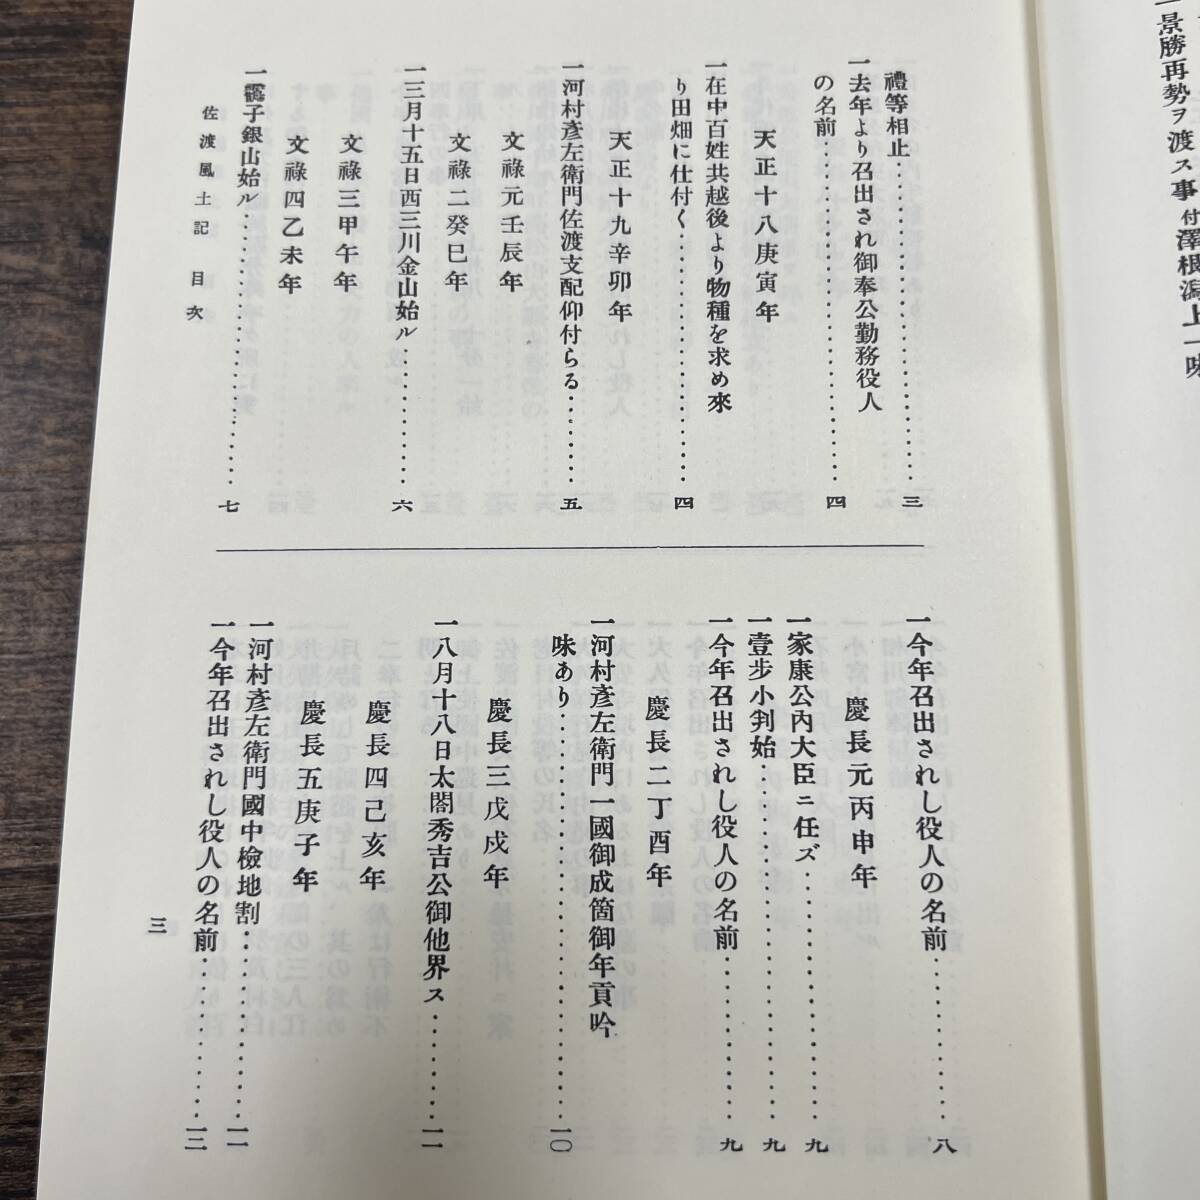 一景勝再勢ヲ渡ス事 付澤根潟上一味
禮等相止……………………三
一去年より召出され御奉公勤務役人
の名前……………………四
天正十八庚寅年
一在中百姓共越後より物種を求め來
り田畑に仕付く……………四
天正十九辛卯年
一河村彥左衛門佐渡支配仰付らる……五
文祿元壬辰年
文祿二癸巳年
一三月十五日西三川金山始ル…………六
文祿三甲午年
文祿四乙未年
一靏子銀山始ル……………………七
佐渡風土記 目次
一今年召出されし役人の名前…………八
慶長元丙申年
一家康公內大臣ニ任ズ………………九
一壹步小判始……………………九
一今年召出されし役人の名前…………九
慶長二丁酉年
一河村彥左衛門一國御成箇御年貢吟
味あり……………………一〇
慶長三戊戌年
一八月十八日太閤秀吉公御他界ス……一一
慶長四己亥年
慶長五庚子年
一河村彥左衛門國中檢地割……………一一
一今年召出されし役人の名前…………一二
三